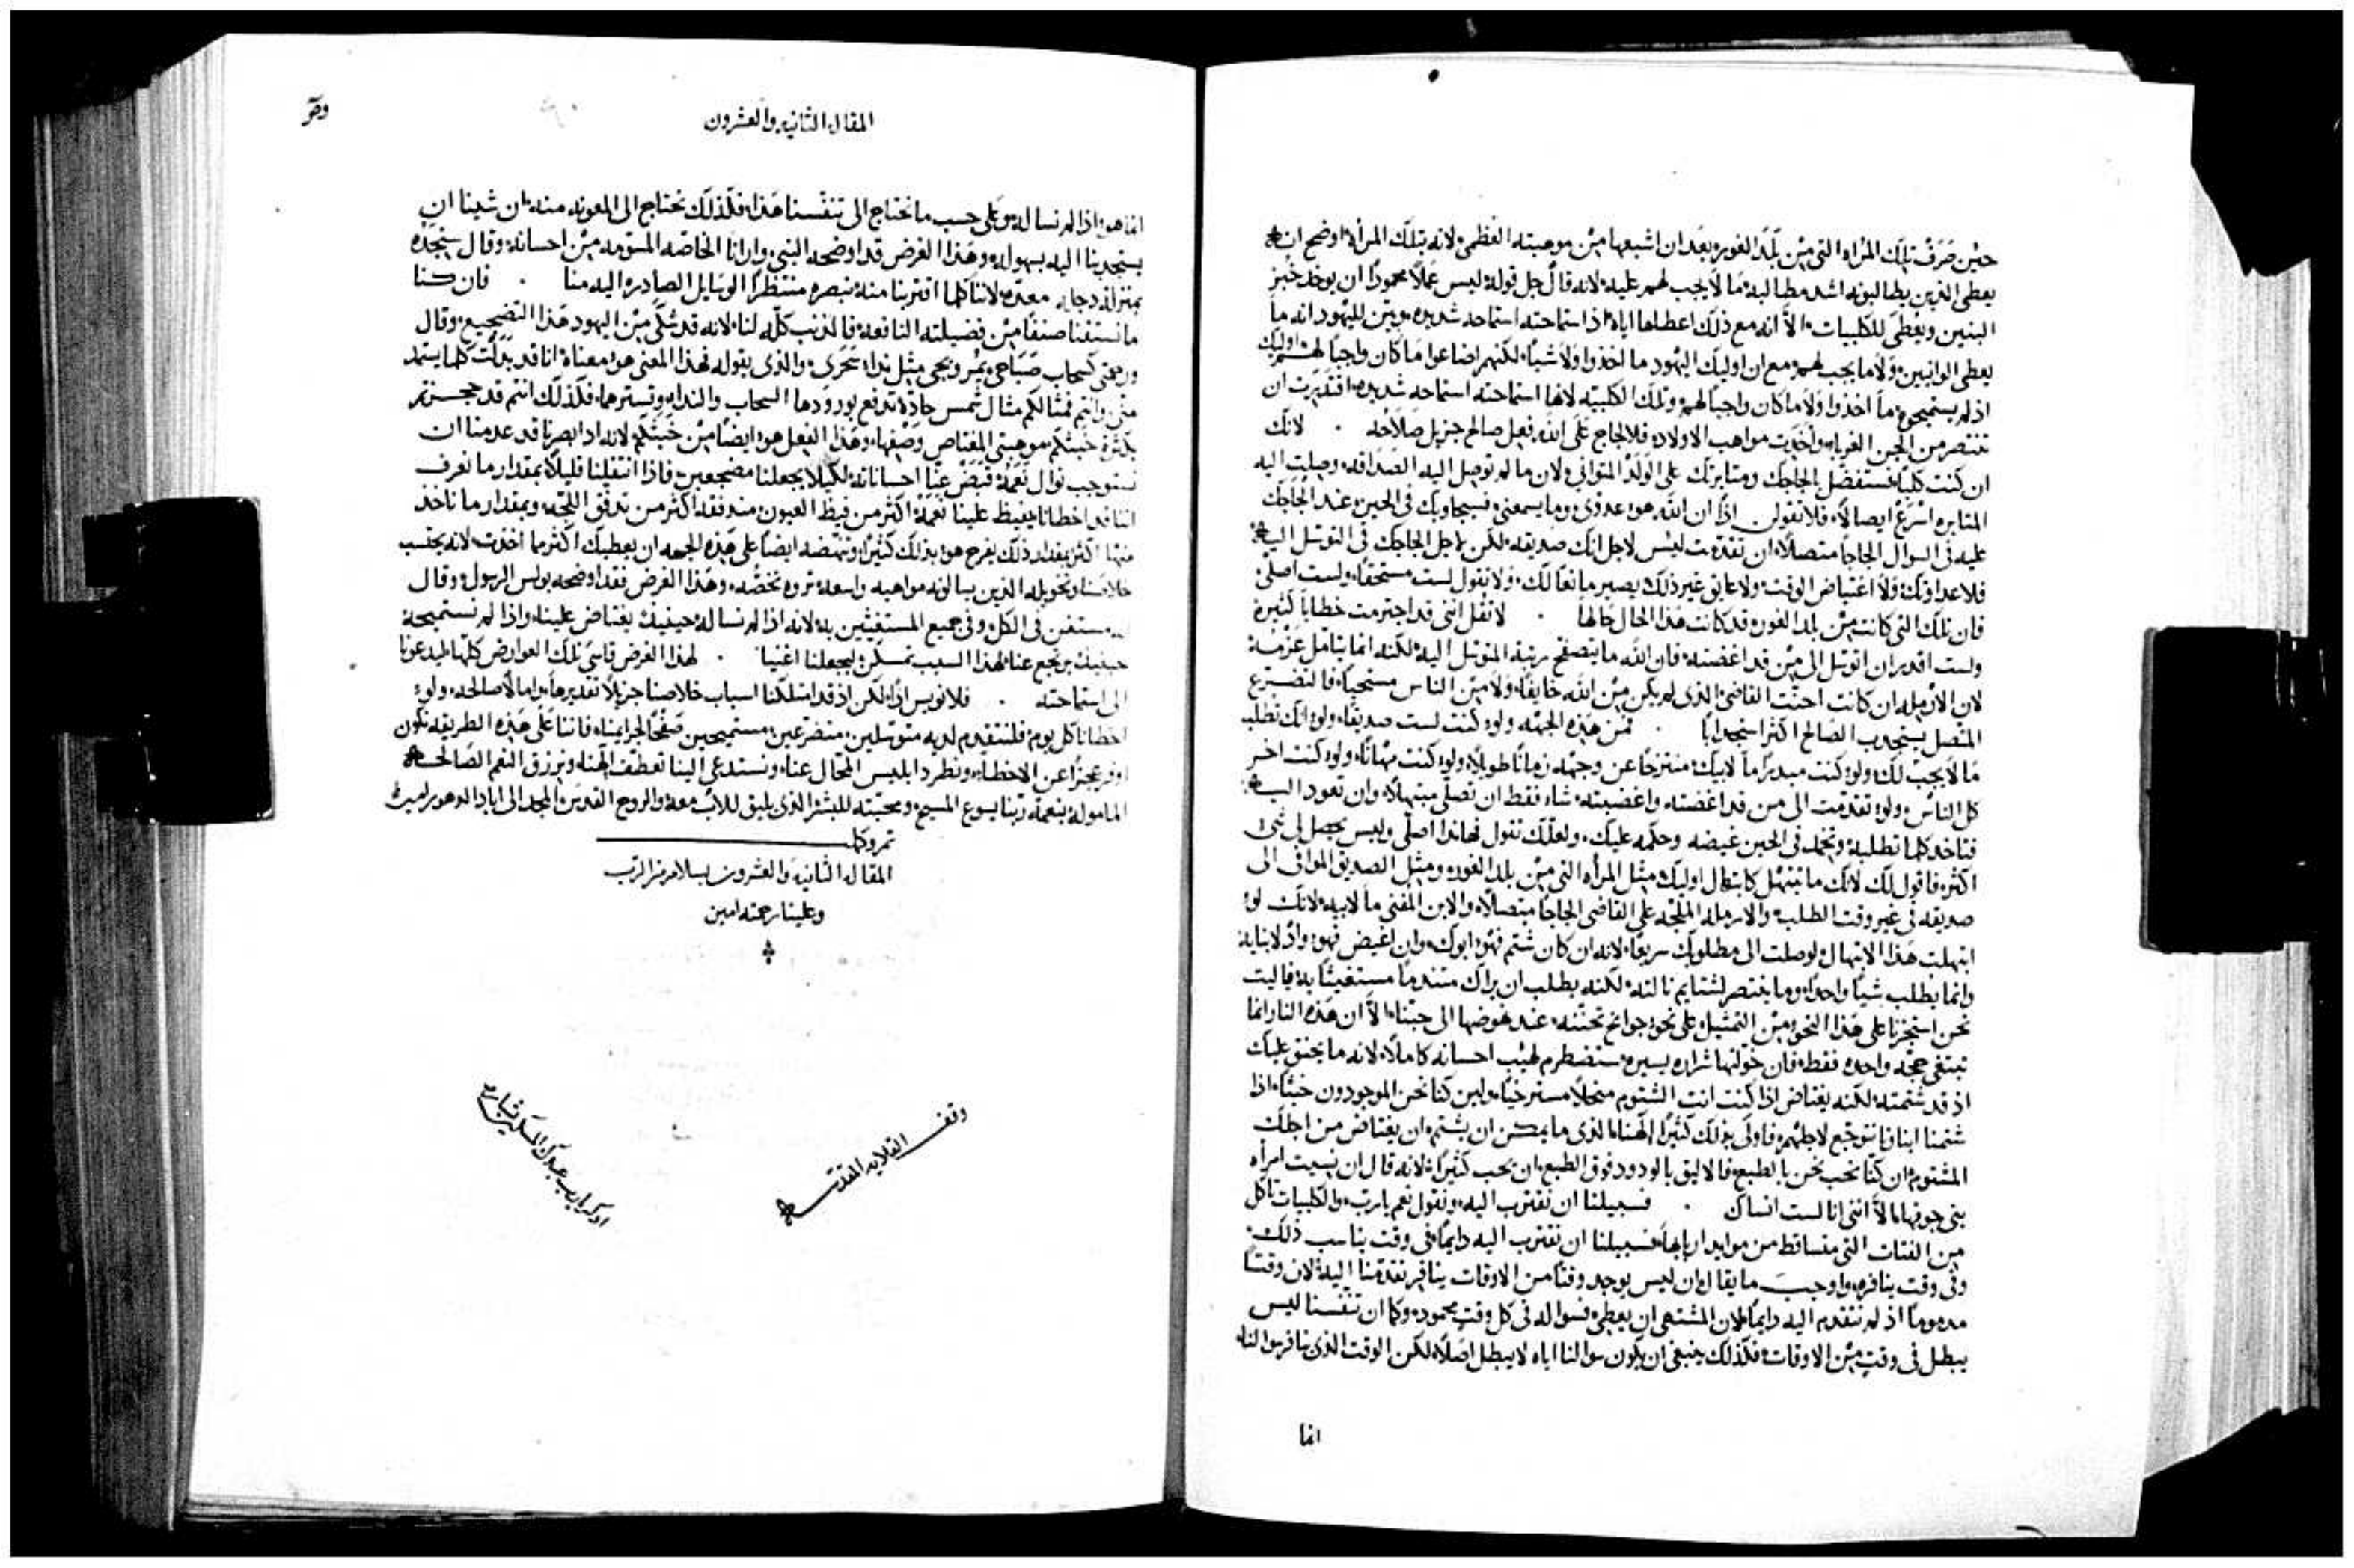 حين صرف تلك المراه التي من بلد الغور بعد ان اشبعها من موهبته العظمى لانه بتلك المراه اوضح انه
يعطي الذين يطالبونه اشد مطالبة ما لا يجب لهم عليه لانه قال جل قوله ليس عملاً محموداً ان يوخذ خبز
البنين ويعطى للكليبات الا انه مع ذلك اعطاها اياه اذ استماحته استماحه شديده وبين لليهود انه ما
يعطي الوانيين ولا ما يجب لهم مع ان اوليك اليهود ما اخذوا ولا شياً لكنهم اضاعوا ما كان واجباً لهم اوليك
اذ لم يستميحوه ما اخذوا ولا ما كان واجباً لهم وتلك الكلبيه لانها استماحته استماحه شديده اقتدرت ان
تنتصر من الجن الغرباء واخذت مواهب الاولاد فالالجاج على الله فعل صالح جزيل صلاحه . لانك
ان كنت كلباً فستفضل بالجاجك ومثابرتك على الولد المتواني لان ما لم توصل اليه الصداقه وصلت اليه
المثابره اسرع ايصالاً فلا تقولن اذاً ان الله هو عدوي وما يسمعني فسيجاوبك في الحين عند الجاجك
عليه في السوال الجاجاً متصلاً ان تقدمت ليس لاجل انك صديقه لكن لاجل الجاجك في التوسل اليه
فلا عداوتك ولا اغتياض الوقت ولا عايق غير ذلك يصير مانعاً لك ولا تقول لست مستحقاً ولست اصلي
فان تلك التي كانت من بلد الغور قد كانت هذا الحال حالها . لا تقل انني قد اجترمت خطايا كثيرة
ولست اقدر ان اتوسل الى من قد اغضبته فان الله ما يتصفح رتبة المتوسل اليه لكنه انما يتامل عزمه
لان الارمله ان كانت احنت القاضي الذي لم يكن من الله خايفاً ولا من الناس مستحياً فالتضرع
المتصل يستجدب الصالح اكثر استجدابا . فمن هذه الجهه ولو كنت لست صديقاً ولو انك تطلب
ما لا يجب لك ولو كنت مبدراً مال ابيك منتزحاً عن وجهه زماناً طويلاً ولو كنت مهاناً ولو كنت اخر
كل الناس ولو تقدمت الى من قد اغضته واغضبته شاء فقط ان تصلي مبتهلاً وان تعود اليه
فتاخذ كلما تطلبه وتخمد في الحين غيضه وحكمه عليك ولعلك تقول فهاندا اصلي وليس يحصل لي شي
اكثر فاقول لك لانك ما تبتهل كابتهال اوليك مثل المراه التي من بلد الغور ومثل الصديق الموافي الى
صديقه في غير وقت الطلب والارمله الملحه على القاضي الجاجاً متصلاً والابن المفني مال ابيه لانك لو
ابتهلت هذا الابتهال لوصلت الى مطلوبك سريعاً لانه ان كان شتم فهو ابوك وان اغيض فهو واد لابنايه
وانما يطلب شياً واحداً وما ينتصر لشتايم نالته لكنه يطلب ان يراك متندماً مستغيثاً به فياليت
نحن استحرنا على هذا النحو من التمثيل على نحو جوانح تحننه عند نهوضها الى حبنا الا ان هذه النار انما
تبتغي حجه واحده فقط فان خولتها شراره يسيره ستضطرم لهيب احسانه كاملاً لانه ما يحنق عليك
اذ قد شتمته لكنه يغتاض اذا كنت انت الشتوم منحلاً مسترخياً ولين كنا نحن الموجودون خبثاً اذا
شتمنا ابنانا نتوجع لاجلهم فاولى بذلك كثيراً الهنا الذي ما يمكن ان يشتم ان يغتاض من اجلك
المشتوم ان كنا نحب نحن بالطبع فالاليق بالودود فوق الطبع ان يحب كثيراً لانه قال ان نسيت امراه
بني جوفها الا انني انا لست انساك . فسبيلنا ان نقترب اليه ونقول نعم يارب والكلبيات تاكل
من الفتات التي متساقط من موايد اربابها فسبيلنا ان نقترب اليه دايماً في وقت يناسب ذلك
وفي وقت ينافره واوجب ما يقال وان ليس يوجد وقتاً من الاوقات ينافر تقدمنا اليه لان وقتاً
مدموماً اذ لم نتقدم اليه دايماً لان المشتهي ان يعطي فسواله في كل وقت محمود وكما ان تنفسنا ليس
يبطل في وقت من الاوقات فكذلك ينبغي ان يكون سوالنا اياه لا يبطل اصلاً لكن الوقت الذي ينافر سوالنا
انما
المقاله الثانيه والعشرون
انما هو اذا لم نساله وعلى حسب ما نحتاج الى تنفسنا هذا فكذلك نحتاج الى المعونه منه ان شينا ان
يستجدبنا اليه بسهوله وهذا الغرض قد اوضحه النبي وارانا الخاصه المستومه من احسانه وقال سنجده
بمنزلة دجايه معتده لاننا كلما اقتربنا منه نبصره منتظراً الوسايل الصادره اليه منا . فان كنا
ما نستفنا صنفاً من فضيلته النافعه فالذنب كله لنا لانه قد شكى من اليهود هذا التضجيع وقال
ورحمتي كسحاب صباحي يمر ويجي مثل نداء سحري والذي يقوله بهذا المعنى هو معناه انا قد بذلت كلما يستمد
مني وانتم فمثالكم مثال شمس حاره تدفع بورودها السحاب والنداء وتسترهما فكذلك انتم قد حجزتم
بكثرة خبثكم موهبتي المغتاص وصفها وهذا الفعل هو ايضاً من خبثكم لانه اذا ابصرنا قد عدمنا ان
نستوجب نوال نعمه قبض عنا احساناته لكيلا يجعلنا مضجعين فاذا انتقلنا قليلاً بمقدار ما نعرف
اننا قد اخطانا يفيظ علينا نعمه اكثر من فيظ العيون مندفقه اكثر من تدفق اللجه وبمقدار ما ناخذ
منها اكثر بمقدار ذلك يفرح هو بذلك كثيراً وتنهضه ايضاً على هذه الجهه ان يعطيك اكثر مما اخذت لانه يحتسب
خلاصنا وتخويله الذين يسالونه مواهبه واسعه ثروه تخصه وهذا الغرض فقد اوضحه بولس الرسول وقال
انه مستغن في الكل وفي جميع المستغيثين به لانه اذا لم نساله حينيذ يغتاض علينا واذا لم نستميحه
حينيذ يرتجع عنا لهذا السبب تمسكن ليجعلنا اغنيا . لهذا الغرض قاسى تلك العوارض كلها ليدعونا
الى استماحته . فلا نويس اذاً لكن اذ قد امتلكنا اسباب خلاصنا جزيلاً تقديرها وامالاً صالحه ولو
اخطانا كل يوم فلنتقدم لديه متوسلين متضرعين مستميحين صفحاً لجرايمنا فاننا على هذه الطريقه نكون
اوفر عجزاً عن الاخطاء ونطرد ابليس المحال عنا ونستدعي الينا تعطف الهنا ونرزق النعم الصالحه
الماموله بنعمة ربنا يسوع المسيح ومحبته للبشر الذي يليق للاب معه والروح القدس المجد الى اباد الدهور امين
تم وكمل
المقاله الثانيه والعشرون بسلام من الرب
وعلينا رحمته امين
وقف
القلايه المقدسه
اذكر يارب عبدك